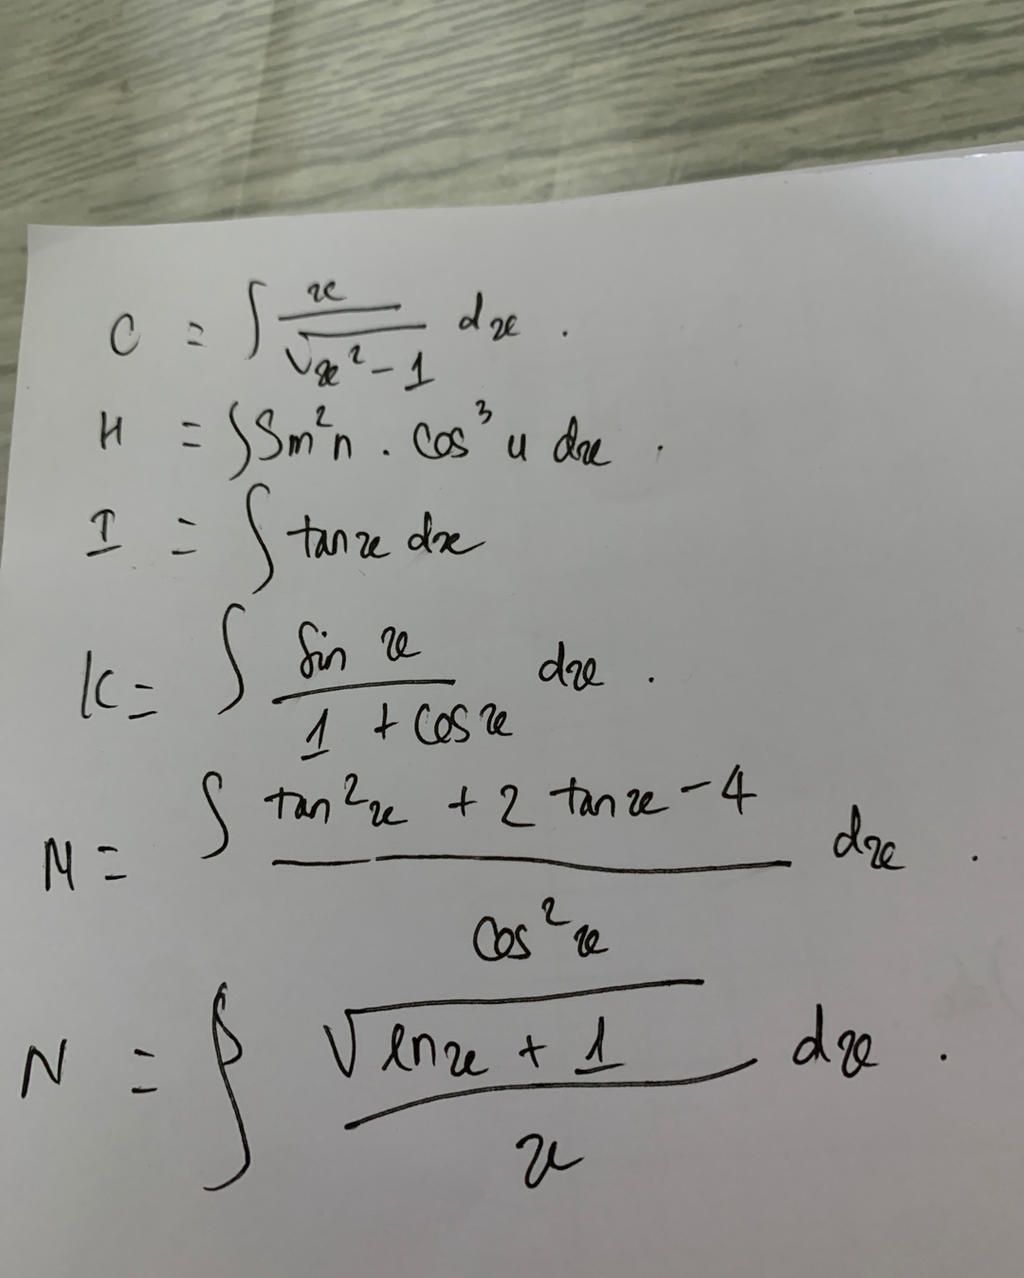 C = ∫ x / √(x² - 1) dx .
H = ∫ Sin²x . cos³ u dx .
I = ∫ tan x dx
K = ∫ Sin x / (1 + cos x) dx .
M = ∫ (tan² x + 2 tan x - 4) / cos² x dx .
N = ∫ √(ln x + 1) / x dx .